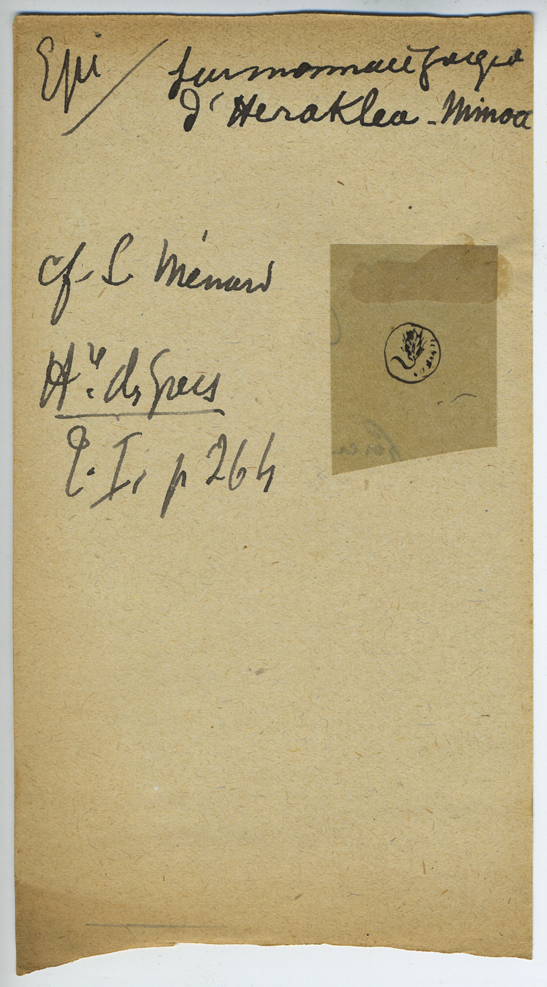 Epi / sur monnaie grecque
d'Heraklea-Minoa
cf. L. Ménard
Hre. des Grecs
T. I, p 264